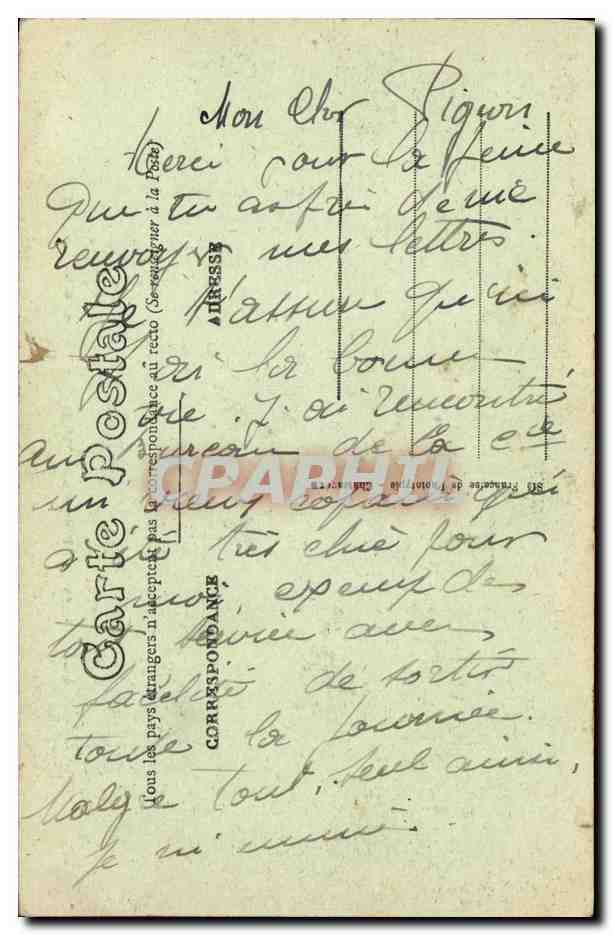 Mon Cher Pignon
Merci pour la peine
Que tu as pris de me
renvoyer mes lettres.
Je t'assure qu'ici
j'ai la bonne
vie. J'ai rencontré
au bureau de la Cie
un vieux copain qui
a été très chic pour
moi, exempt de
tout service avec
facilité de sortir
toute la journée.
Malgré tout, seul ainsi,
je m'ennuie.
Carte Postale
Tous les pays étrangers n'acceptent pas la correspondance au recto (Se renseigner à la Poste)
CORRESPONDANCE
ADRESSE
Sté Française de Phototypie -
CPARAMA